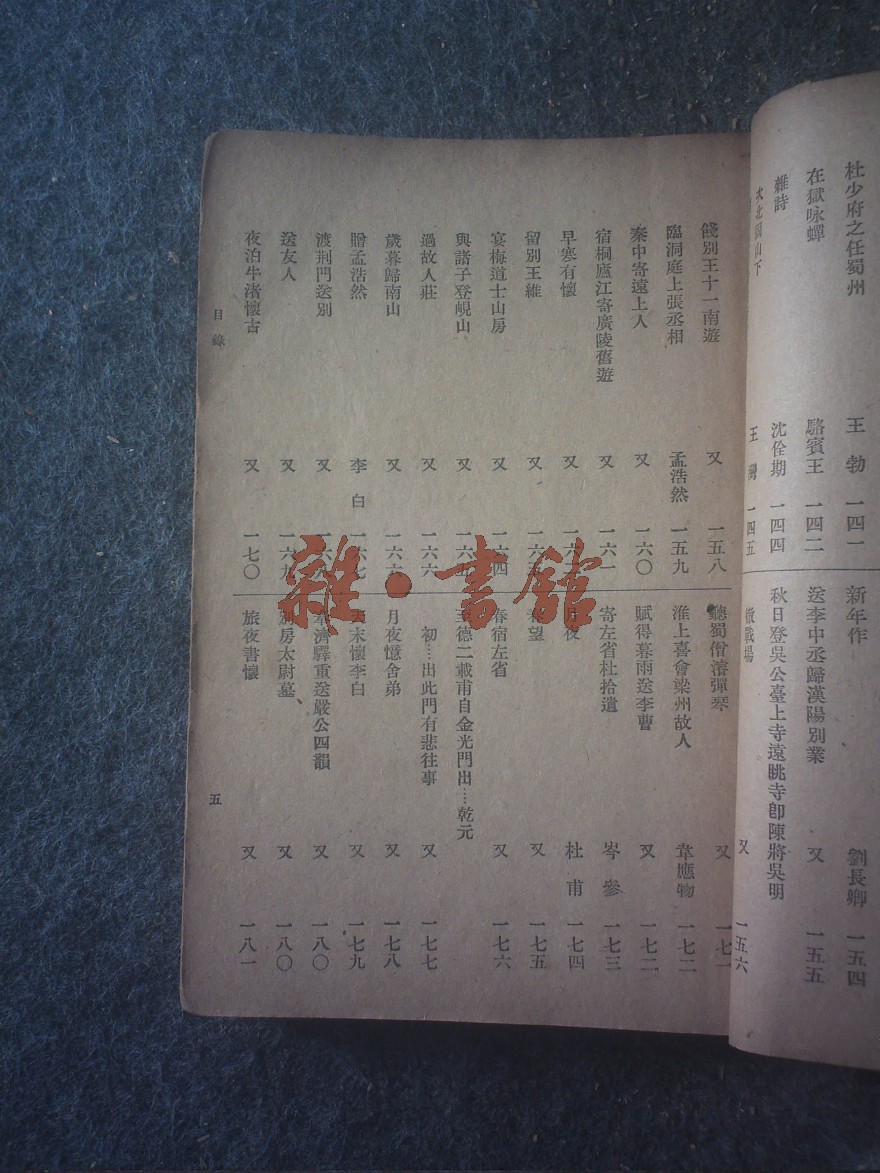 杜少府之任蜀州 王勃 一四一
在獄咏蟬 駱賓王 一四二
雜詩 沈佺期 一四四
次北固山下 王灣 一四五
新年作 劉長卿 一五四
送李中丞歸漢陽別業 又 一五五
秋日登吳公臺上寺遠眺寺卽陳將吳明
徹戰場 又 一五六
餞別王十一南遊 又 一五八
臨洞庭上張丞相 孟浩然 一五九
秦中寄遠上人 又 一六〇
宿桐廬江寄廣陵舊遊 又 一六一
早寒有懷 又 一六
留別王維 又 一六
宴梅道士山房 又 一六四
與諸子登峴山 又 一六五
過故人莊 又 一六六
歲暮歸南山 又 一六六
贈孟浩然 李白 一六七
渡荆門送別 又 一六
送友人 又 一六九
夜泊牛渚懷古 又 一七〇
聽蜀僧濬彈琴 又 一七一
淮上喜會梁州故人 韋應物 一七二
賦得暮雨送李曹 又 一七二
寄左省杜拾遺 岑參 一七三
月夜 杜甫 一七四
春望 又 一七五
春宿左省 又 一七六
至德二載甫自金光門出……乾元
初……出此門有悲往事 又 一七七
月夜憶舍弟 又 一七八
天末懷李白 又 一七九
奉濟驛重送嚴公四韻 又 一八〇
別房太尉墓 又 一八〇
旅夜書懷 又 一八一
目錄
五
雜·書館